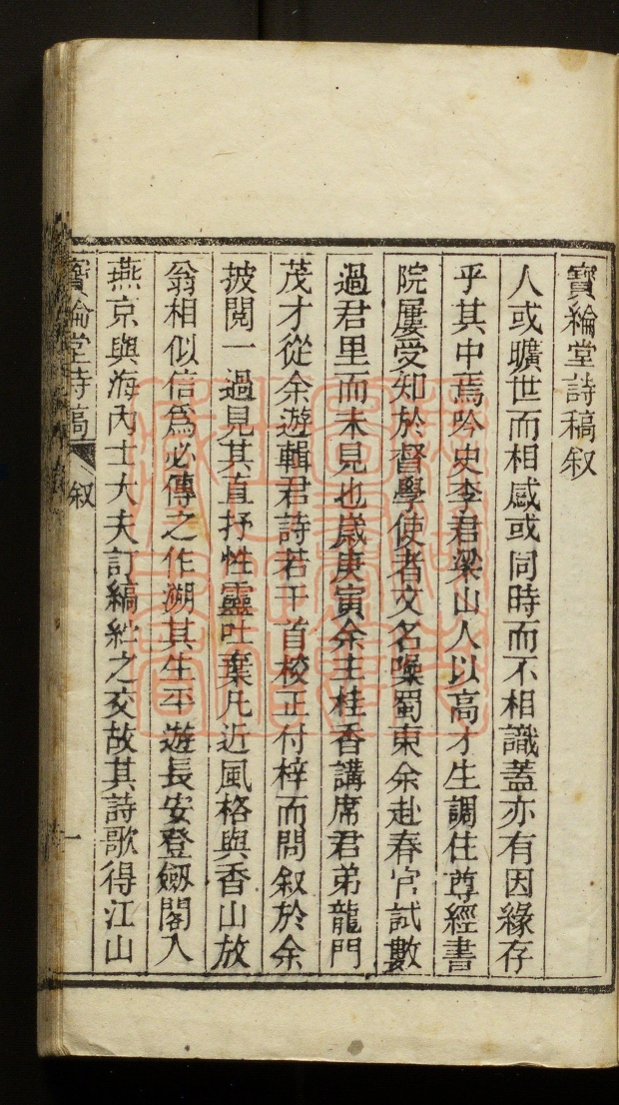 寶綸堂詩稿叙
人或曠世而相感或同時而不相識蓋亦有因緣存
乎其中焉吟史李君梁山人以高才生調住尊經書
院屢受知於督學使者文名噪蜀東余赴春官試數
過君里而未見也歲庚寅余主桂香講席君弟龍門
茂才從余遊輯君詩若干首校正付梓而問叙於余
披閱一過見其直抒性靈吐棄凡近風格與香山放
翁相似信爲必傳之作溯其生平遊長安登劒閣入
燕京與海內士大夫訂縞紵之交故其詩歌得江山
寶綸堂詩稿 叙 一